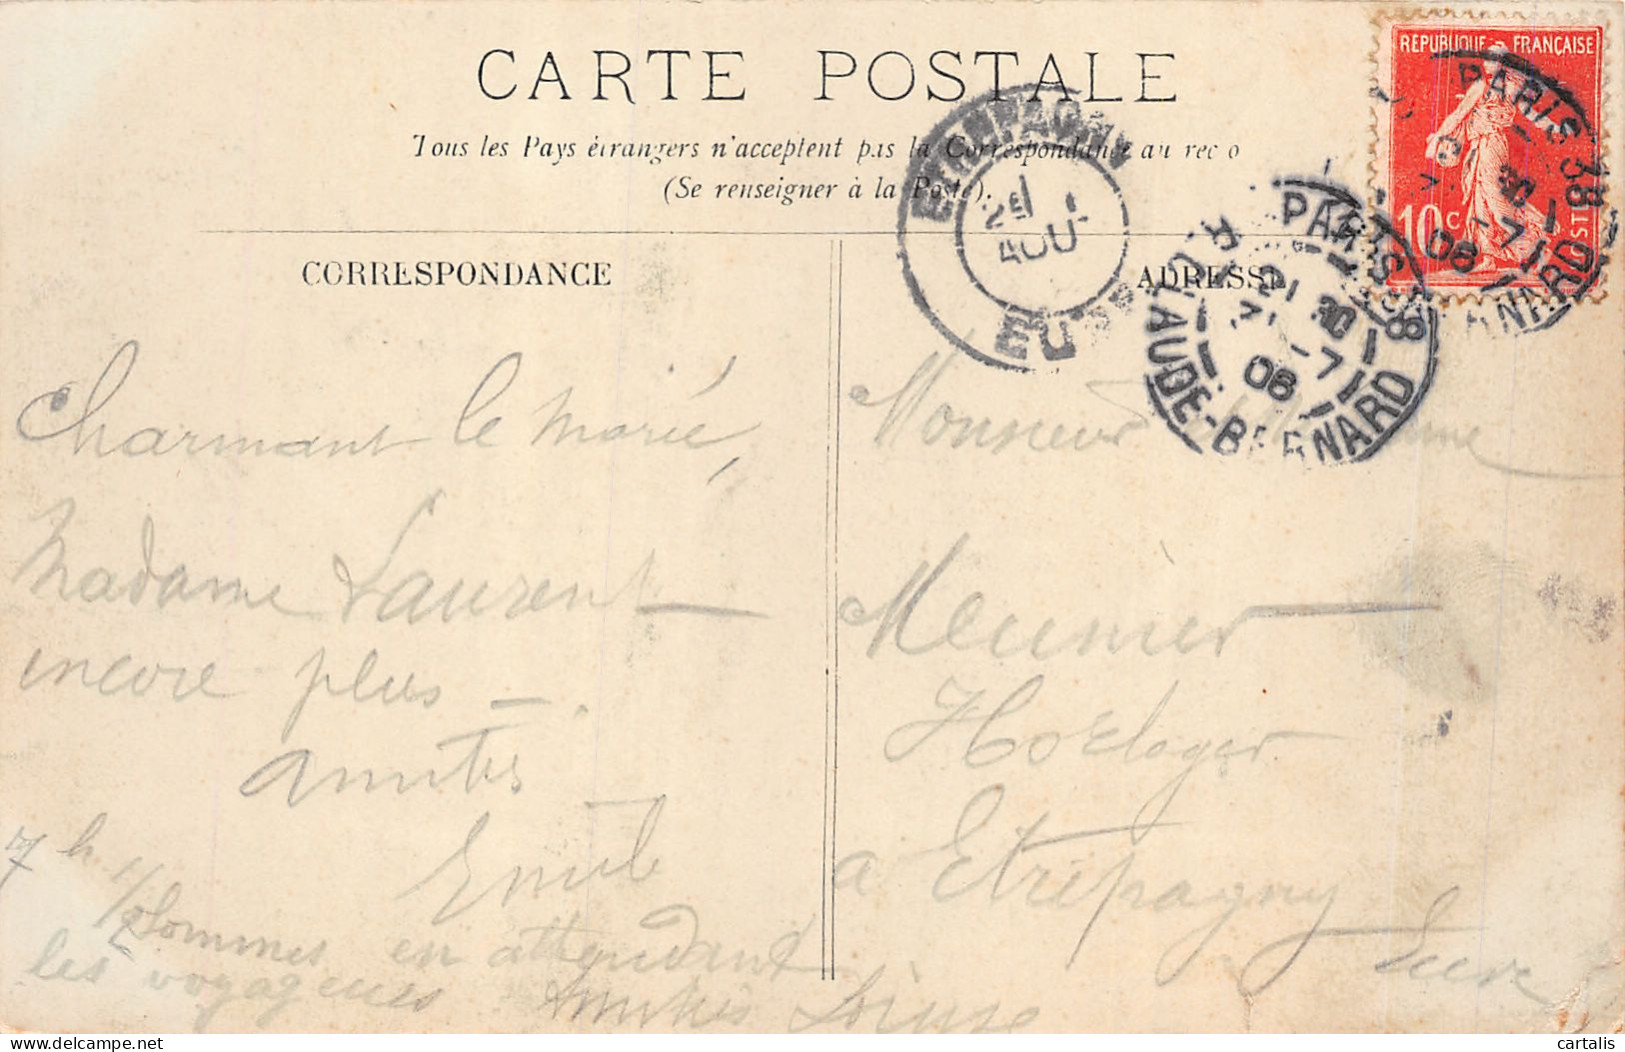 CARTE POSTALE
Tous les Pays étrangers n'acceptent pas la Correspondance au recto
(Se renseigner à la Poste).
CORRESPONDANCE
ADRESSE
RÉPUBLIQUE FRANÇAISE
10c
POSTES
PARIS 38
30
7
08
BERNARD
PARIS 38
R. CLAUDE-BERNARD
30
7
08
ÉTRÉPAGNY
AOU
EURE
Charmant le marié,
Madame Laurent —
encore plus —.
amitiés
Emile
7h 1/2 Sommes en attendant
les voyageurs Amitiés
Monsieur Madame
Meunier
Horloger
a Etrépagny
Eure
cartalis